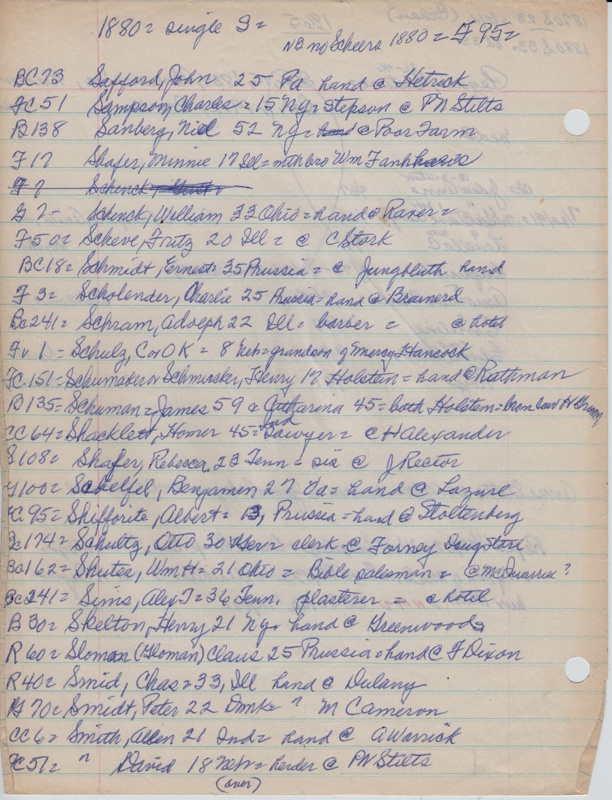 1880 = single S =
NB no Scheers 1880 = F 95 =
BC 73 Safford, John 25 Pa hand @ Hetrick
FC 51 Sampson, Charles = 15 Ny = stepson @ PN Stilts
B138 Sanberg, Niel 52 Ny = @ Poor Farm
F 17 Shafer, Minnie 17 Ill = mthbro Wm Fankhauses
F 7 Schenck,
G 7 = Schenck, William 33 Ohio = hand @ Raver =
F 50 = Scheve, Fritz 20 Ill = @ C Stork
BC 18 = Schmidt, Ernest 35 Prussia = @ Jungbluth hand
F 3 = Scholender, Charlie 25 Prussia = hand @ Brainerd
Bc 241 = Schram, Adolph 22 Ill = barber = @ hotel
Fv 1 = Schulz, Cor OK = 8 Neb = grandson of Mercy Hancock
FC. 151 = Schumaker or Schmisser, Henry 17 Holstein = hand @ Rathman
B 135 = Schuman = James 59 & Catharina 45 = both Holstein = broinlaw H
CC 64 = Shacklett, Homer 45 = Ind Lawyer = @ H Alexander
S 108 = Shafer, Rebecca 23 Tenn = sis @ J Rector
100 = Schelfel, Benjamen 27 Va = hand @ Lazure
FC. 95 = Shifforite, Albert = 13, Prussia = hand @ Stoltenberg
Bc 174 = Schultz, Otto 30 Hav = clerk @ Forney Drug Store
Bc 162 = Shutes, Wm H = 21 Ohio = Bible salesman = @ McQuarrie ?
Bc 241 = Sims, Alex T = 36 Tenn, plasterer = @ hotel
B 30 = Skelton, Henry 21 Ny = hand @ Greenwoods
R 60 = Sloman (Floman) Claus 25 Prussia = hand @ F Dixon
R 40 = Smid, Chas = 33, Ill hand @ Dulany
70 = Smidt, Peter 22 Dmk = ? M Cameron
CC 6 = Smith, Allen 21 Ind = hand @ A Warrick
FC 51 = " David 18 = herder @ PN Stilts
(over)